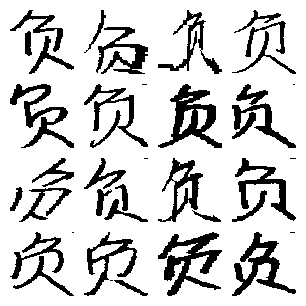 负负负负
负负负负
负负负负
负负负负